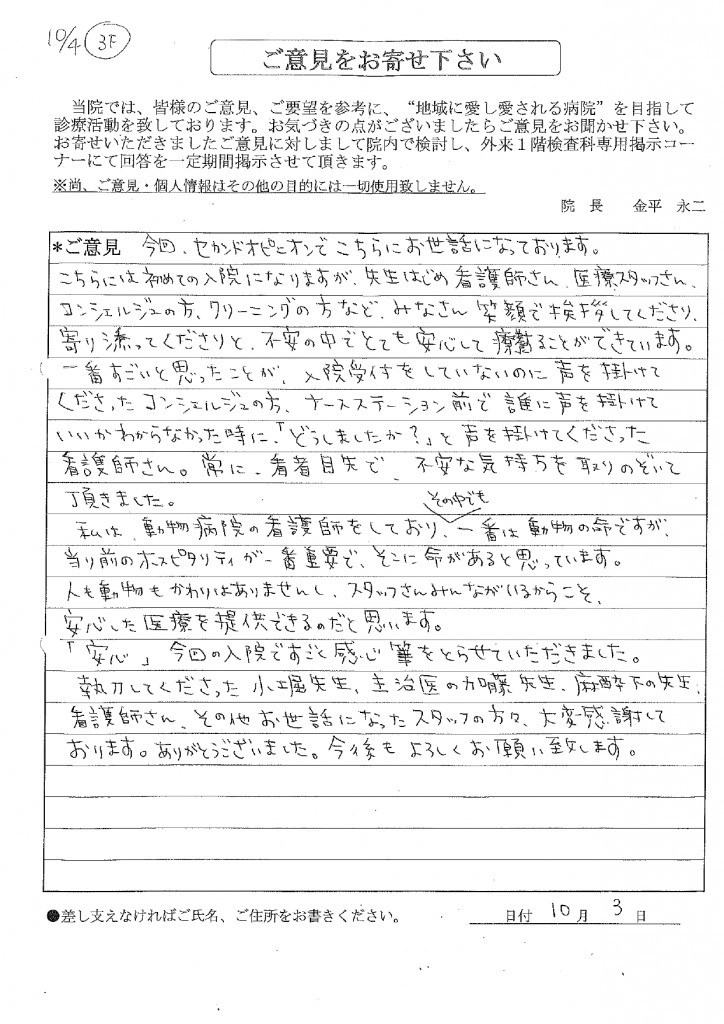 10/4 3F
ご意見をお寄せ下さい
当院では、皆様のご意見、ご要望を参考に、“地域に愛し愛される病院”を目指して
診療活動を致しております。お気づきの点がございましたらご意見をお聞かせ下さい。
お寄せいただきましたご意見に対しまして院内で検討し、外来１階検査科専用掲示コー
ナーにて回答を一定期間掲示させて頂きます。
※尚、ご意見・個人情報はその他の目的には一切使用致しません。
院　長　　金平　永二
*ご意見　今回、セカンドオピニオンでこちらにお世話になっております。
こちらには初めての入院になりますが、先生はじめ看護師さん、医療スタッフさん、
コンシェルジュの方、クリーニングの方など、みなさん笑顔で挨拶してくださり、
寄り添ってくださりと、不安の中でとても安心して療養することができています。
一番すごいと思ったことが、入院受付をしていないのに声を掛けて
くださったコンシェルジュの方、ナースステーション前で誰に声を掛けて
いいかわからなかった時に、「どうしましたか？」と声を掛けてくださった
看護師さん。常に、看者目先で、不安な気持ちを取りのぞいて
頂きました。
私は、動物病院の看護師をしており、その中でも一番は動物の命ですが、
当り前のホスピタリティが一番重要で、そこに命があると思っています。
人も動物もかわりはありませんし、スタッフさんみんながいるからこそ、
安心した医療を提供できるのだと思います。
「安心」今回の入院ですごく感心し筆をとらせていただきました。
執刀してくださった小堀先生、主治医の加藤先生、麻酔下の先生、
看護師さん、その他お世話になったスタッフの方々、大変感謝して
おります。ありがとうございました。今後もよろしくお願い致します。
●差し支えなければご氏名、ご住所をお書きください。　日付 10月 3日